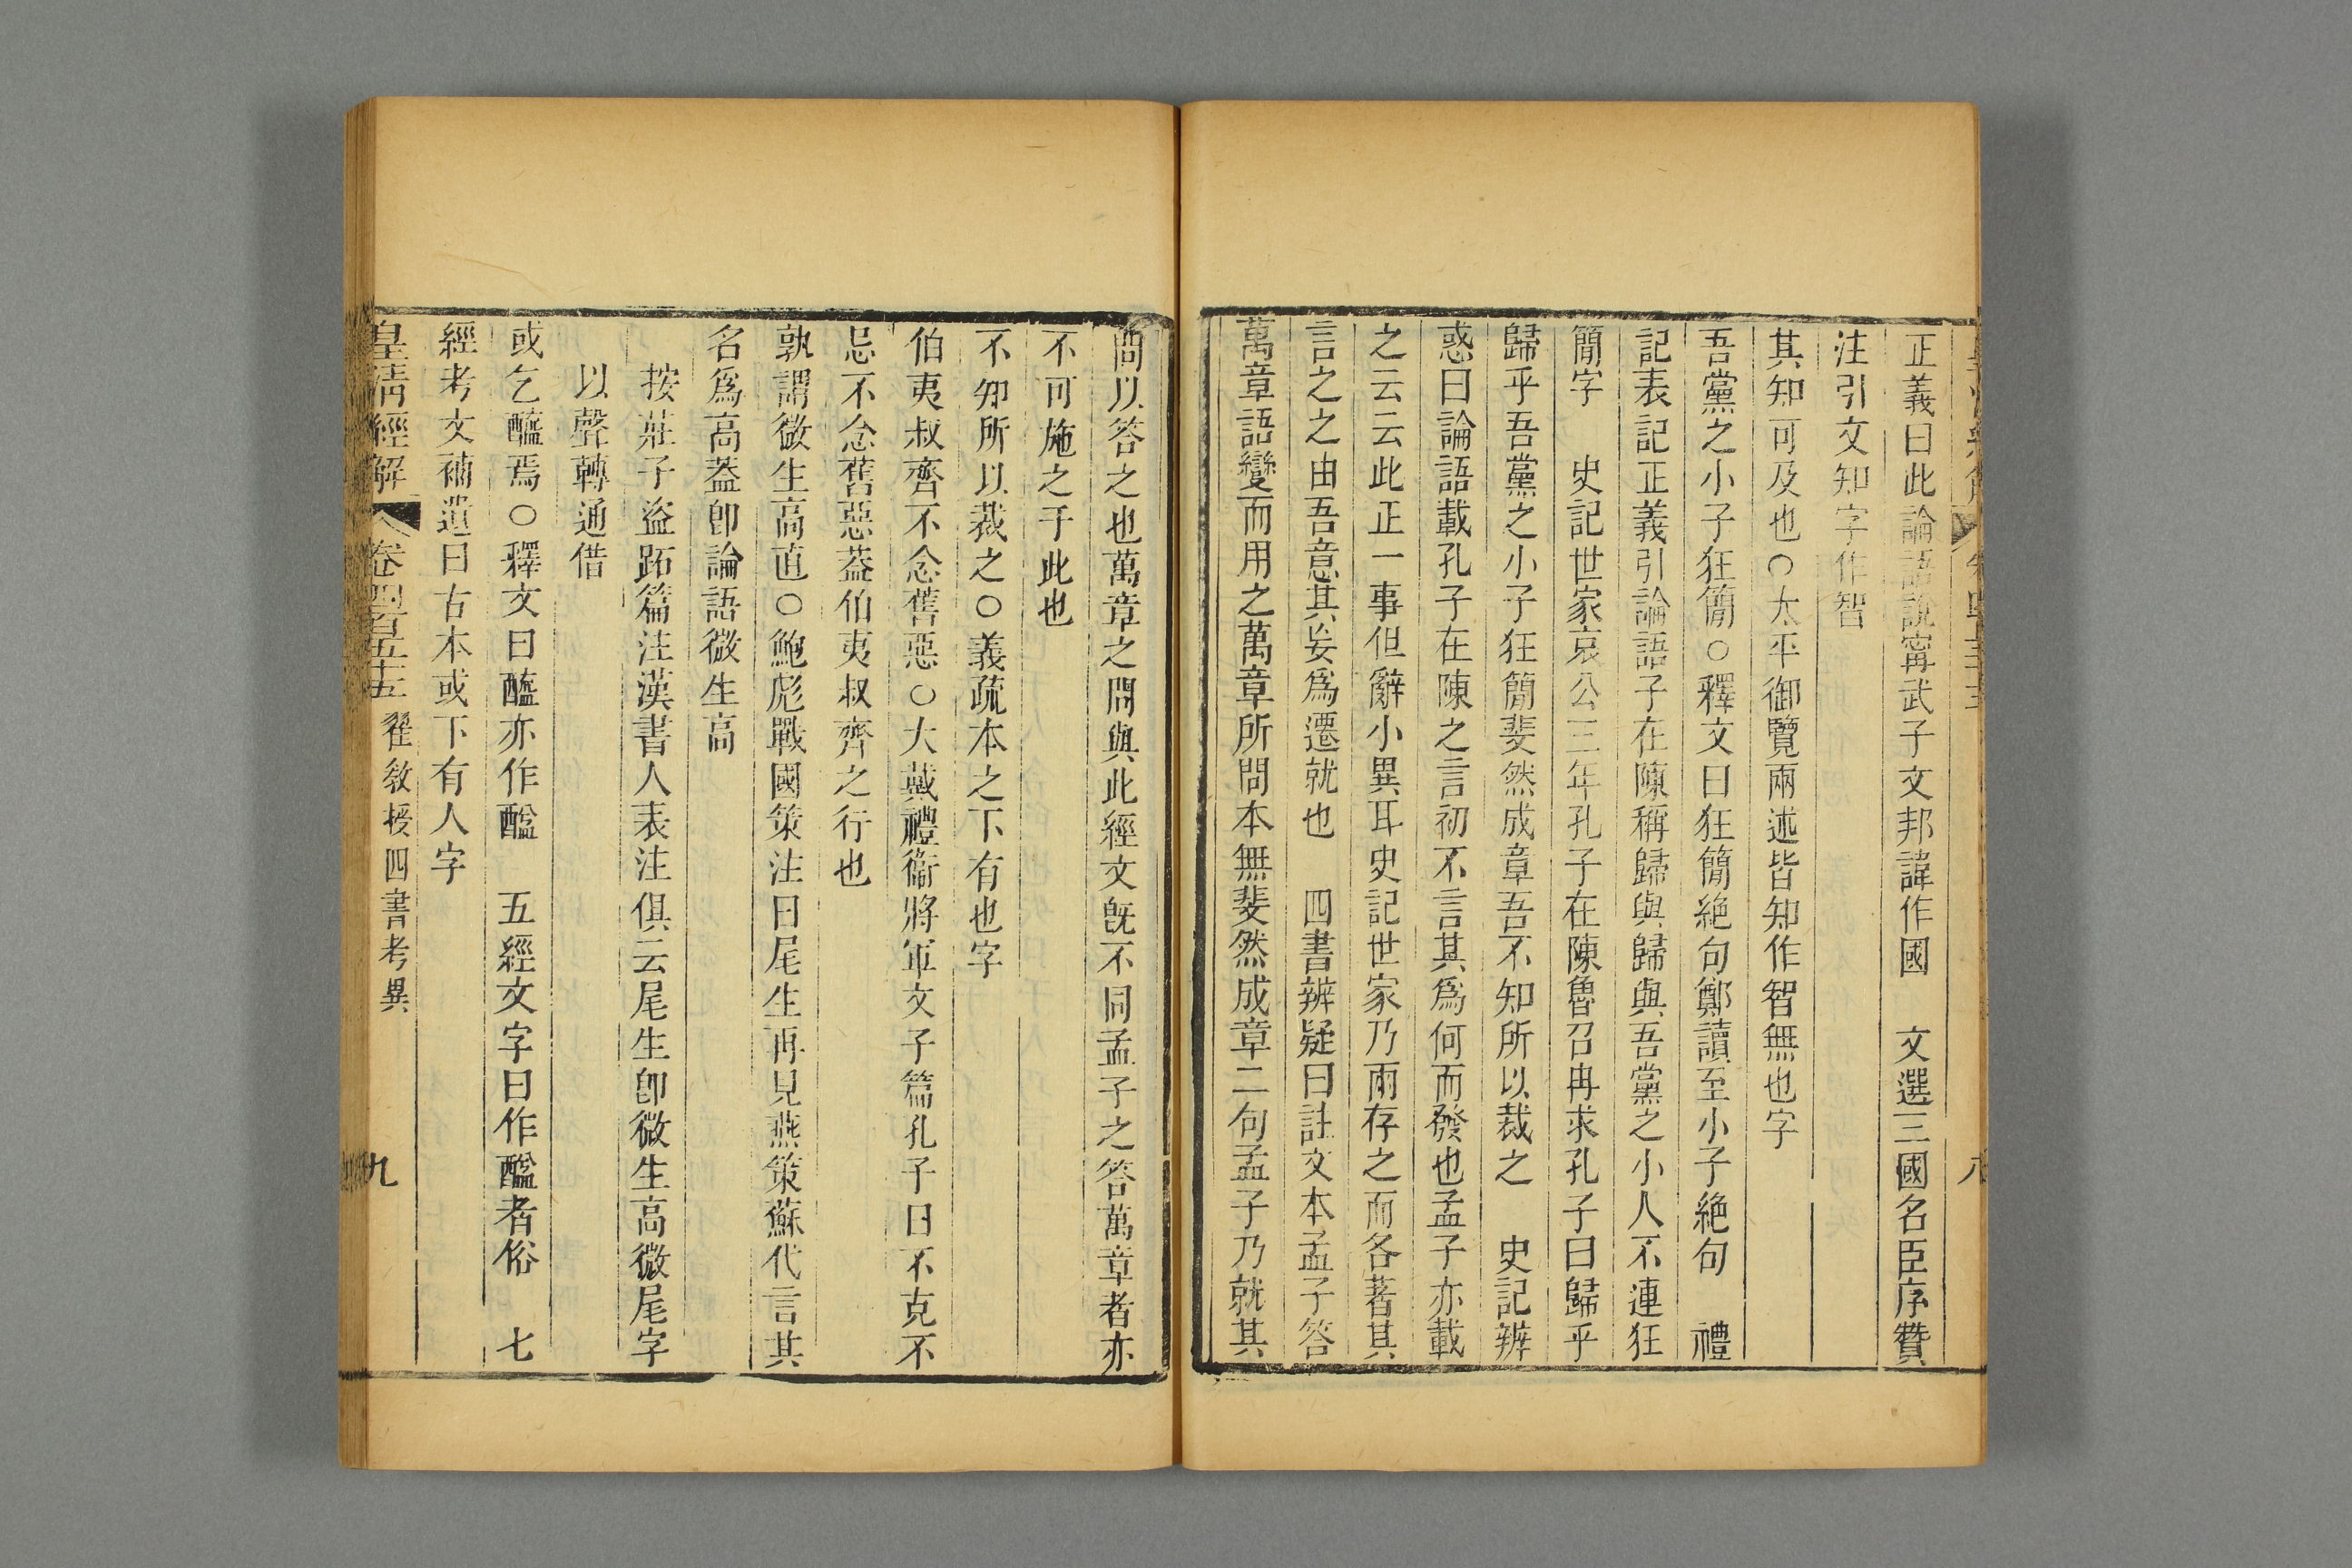 正義曰此論語說寗武子文邦諱作國　文選三國名臣序贊
注引文知字作智
其知可及也○太平御覽兩述皆知作智無也字
吾黨之小子狂簡○釋文曰狂簡絶句鄭讀至小子絶句　禮
記表記正義引論語子在陳稱歸與歸與吾黨之小人不連狂
簡字　史記世家哀公三年孔子在陳魯召冉求孔子曰歸乎
歸乎吾黨之小子狂簡斐然成章吾不知所以裁之　史記辨
惑曰論語載孔子在陳之言初不言其為何而發也孟子亦載
之云云此正一事但辭小異耳史記世家乃兩存之而各著其
言之之由吾意其妄為遷就也　四書辨疑曰註文本孟子答
萬章語變而用之萬章所問本無斐然成章二句孟子乃就其
問以答之也萬章之問與此經文旣不同孟子之答萬章者亦
不可施之于此也
不知所以裁之○義疏本之下有也字
伯夷叔齊不念舊惡○大戴禮衞將軍文子篇孔子曰不克不
忌不念舊惡葢伯夷叔齊之行也
孰謂微生高直○鮑彪戰國策注曰尾生再見燕策蘇代言其
名為高葢卽論語微生高
按莊子盜跖篇注漢書人表注俱云尾生卽微生高微尾字
以聲轉通借
或乞醯焉○釋文曰醯亦作醯　五經文字曰作醯者俗　七
經考文補遺曰古本或下有人字
皇清經解　卷四百五十五　翟敎授四書考異　九
八